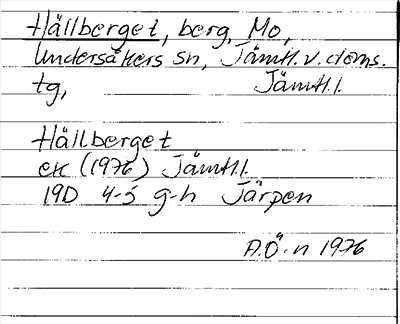 Hällberget, berg, Mo,
Undersåkers sn, Jämtl. v. doms.
tg, Jämtl.l.
Hällberget
ek (1976) Jämtl.l.
19D 4-5 g-h Järpen
A.Ö-n 1976